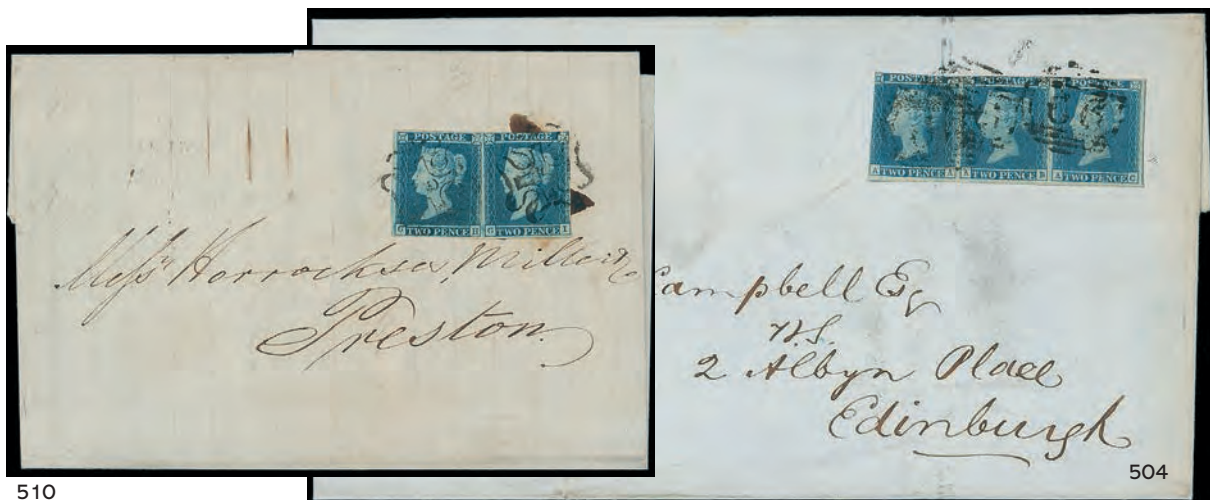 POSTAGE POSTAGE
G TWO PENCE H G TWO PENCE I
Messrs Horrockses, Miller & Co
Preston.
510
POSTAGE POSTAGE POSTAGE
A TWO PENCE A A TWO PENCE B A TWO PENCE C
Campbell Esq
W.S.
2 Albyn Place
Edinburgh
504